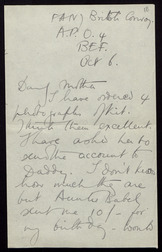 FANY British Convoy
A.P.O. 4
B.E.F.
Oct 6.
Mother
I have ordered 4
photographs
think them excellent.
I have asked her to
send the account to
Daddy. I don't know
how much they are
but Auntie
sent me 10/- for
my birthday.